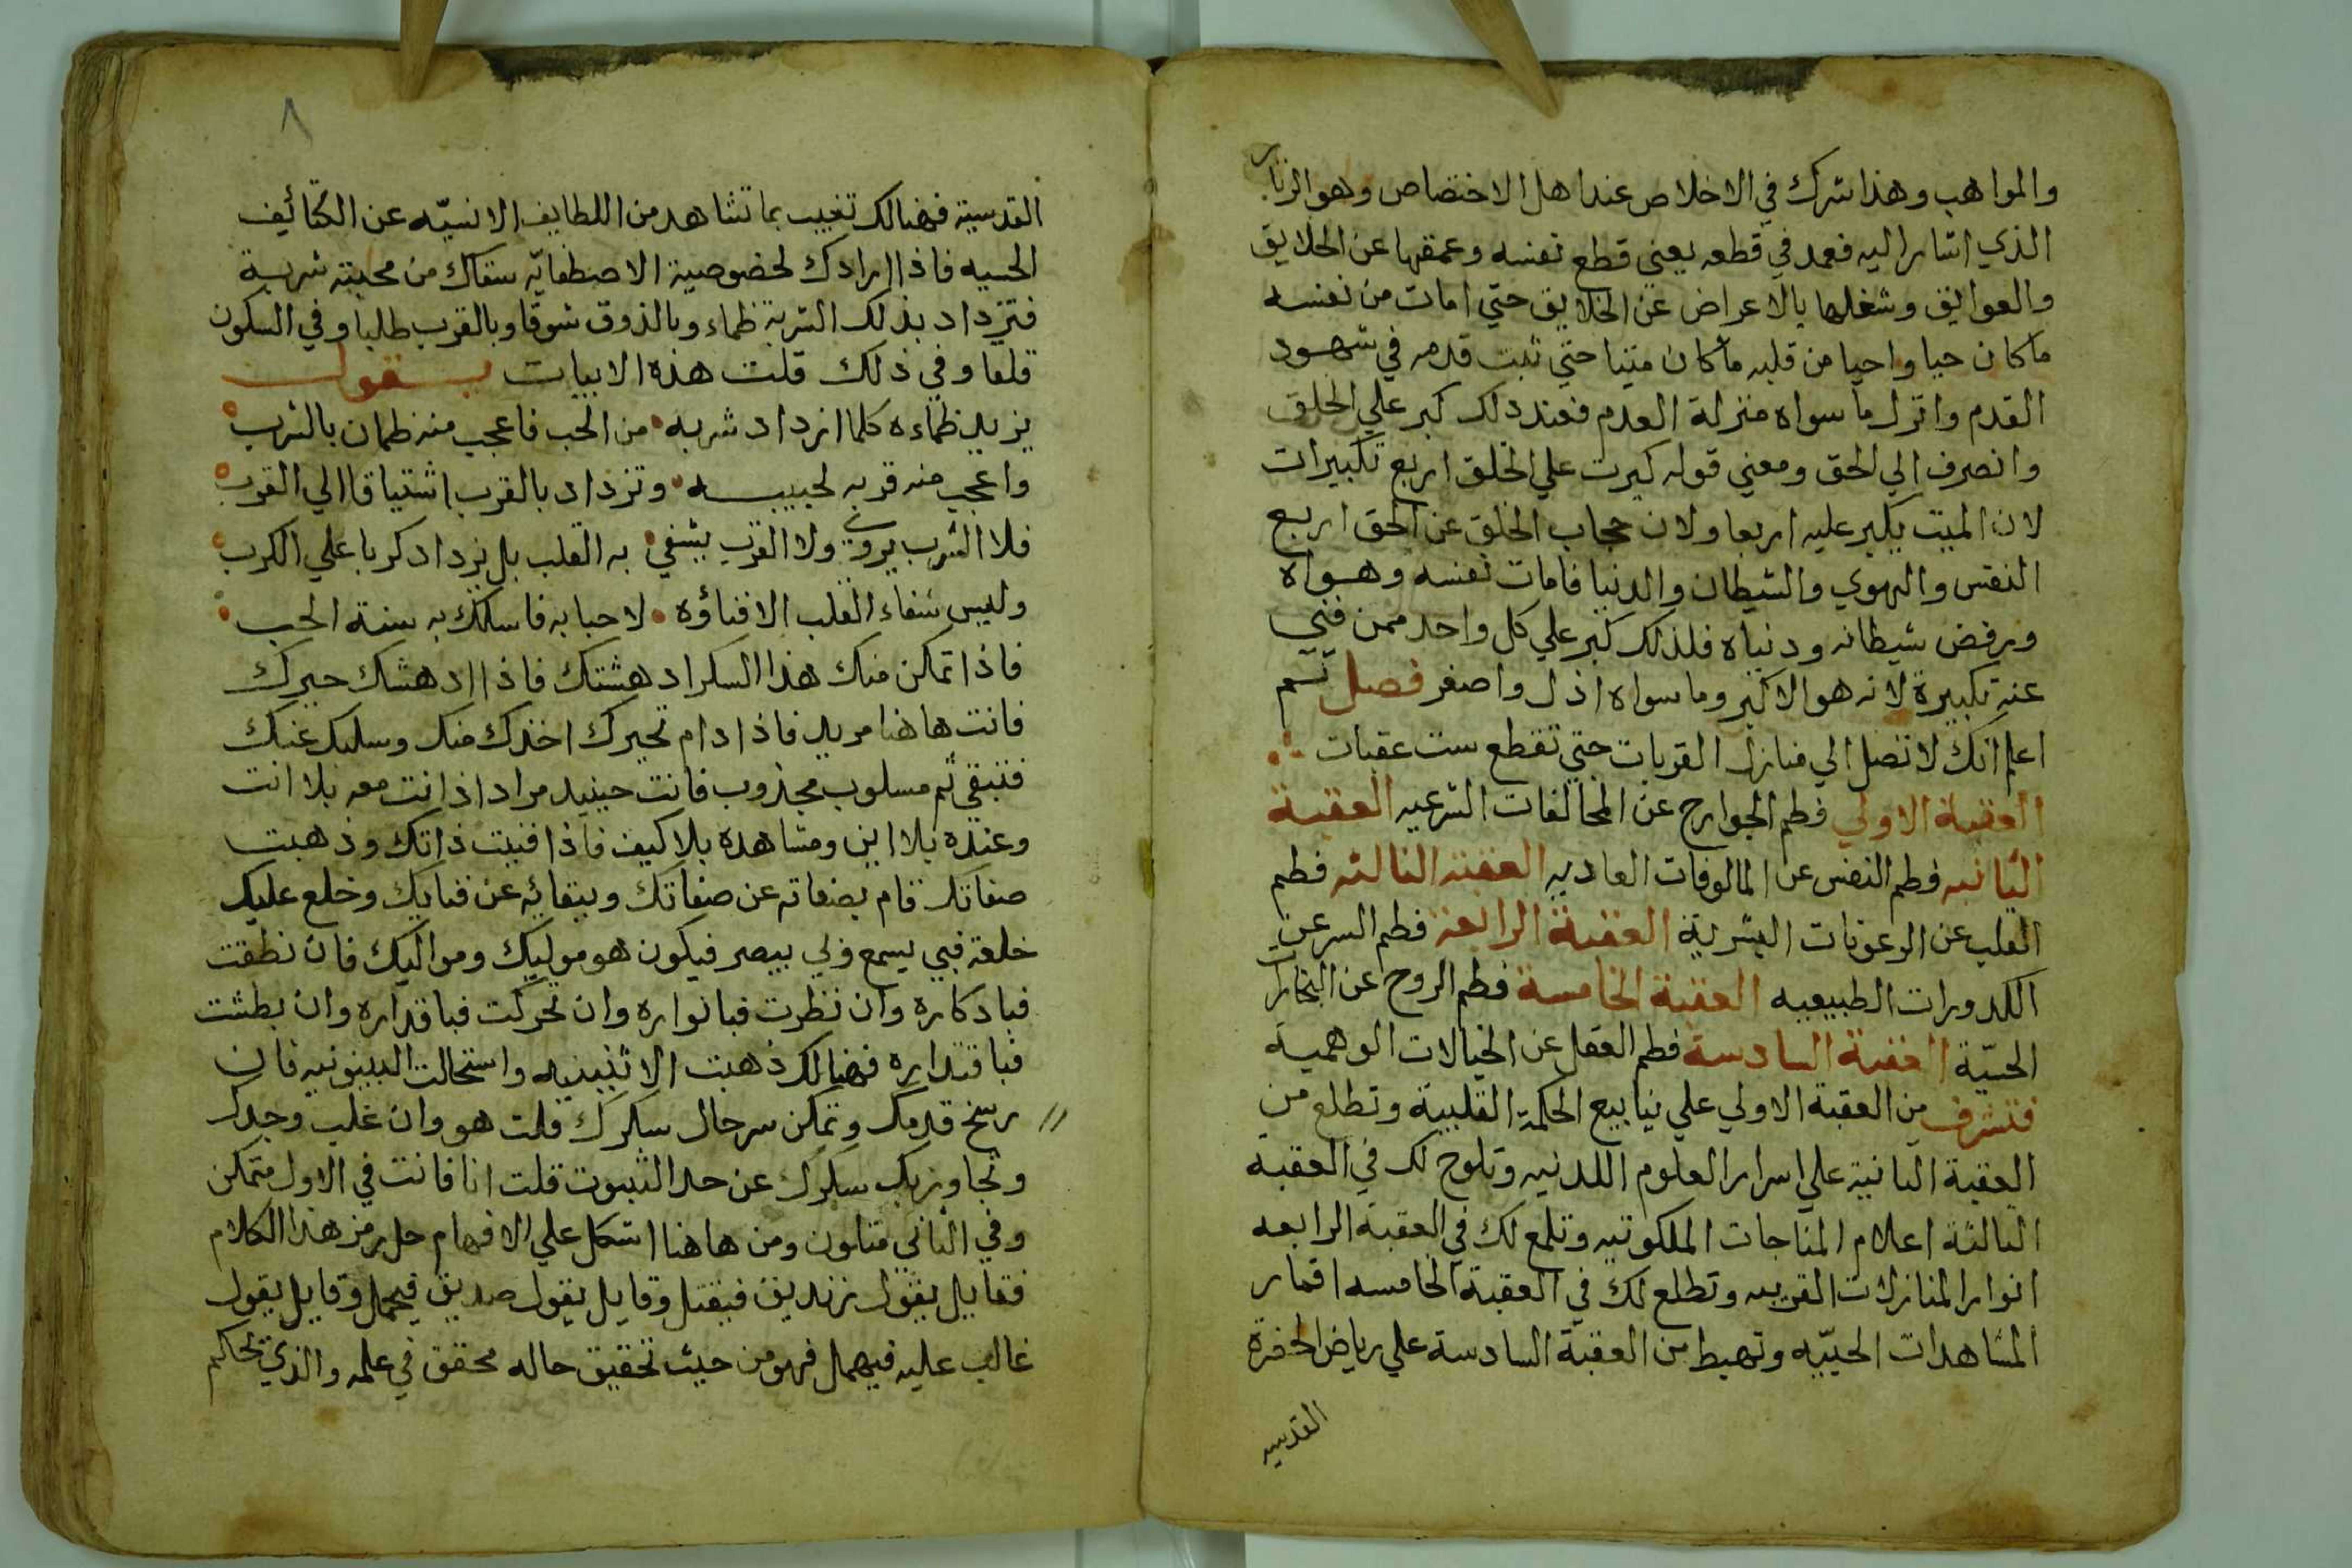 والمواهب وهذا شرك في الاخلاص عند اهل الاختصاص وهو الزنار
الذي اشار اليه فعمد في قطعه يعني قطع نفسه وعمقها عن الخلايق
والعوايق وشغلها بالاعراض عن الخلايق حتي امات من نفسه
ما كان حيا واحيا من قلبه ما كان ميتا حتي ثبت قدمه في شهود
القدم وانزل ما سواه منزلة العدم فعند ذلك كبر علي الخلق
وانصرف الي الحق ومعني قوله كبرت علي الخلق اربع تكبيرات
لان الميت يكبر عليه اربعا ولان حجاب الخلق عن الحق اربع
النفس والهوي والشيطان والدنيا فامات نفسه وهواه
ورفض شيطانه ودنياه فلذلك كبر علي كل واحد ممن فني
عنه تكبيرة لانه هو الاكبر وما سواه اذل واصغر فصل ثم
اعلم انك لا تصل الي منازل القربات حتي تقطع ست عقبات
العقبة الاولي فطم الجوارح عن المخالفات الشرعيه العقبة
الثانيه فطم النفس عن المالوفات العاديه العقبة الثالثه فطم
القلب عن الرعونات البشرية العقبة الرابعة فطم السر عن
الكدورات الطبيعيه العقبة الخامسة فطم الروح عن البخارات
الحسيّة العقبة السادسة فطم العقل عن الخيالات الوهمية
فتشرف من العقبة الاولي علي ينابيع الحكمة القلبية وتطلع من
العقبة الثانية علي اسرار العلوم اللدنيه وتلوح لك في العقبه
الثالثة اعلام المناجات الملكوتيه وتلمع لك في العقبة الرابعه
انوار المنازلات القربيه وتطلع لك في العقبة الخامسه اقمار
المشاهدات الحبيّه وتهبط من العقبة السادسة علي رياض الحضرة
القدسيه
٨
القدسية فهنالك تغيب بما تشاهد من اللطايف الانسيّه عن الكثائف
الحسيه فاذا ارادك لخصوصية الاصطفائيّه سقاك من محبته شربة
فتزداد بذلك الشربة ظماء وبالذوق شوقا وبالقرب طلبا وفي السكون
قلقا وفي ذلك قلت هذه الابيات يقول
يزيد ظماءه كلما ازداد شربه من الحب فاعجب منه ظمان بالشرب
واعجب منه قربه لحبيبه وتزداد بالقرب اشتياقا الي القرب
فلا الشرب يروي ولا القرب يشفي به القلب بل يزداد كربا علي الكرب
وليس شفاء القلب الا فناؤه لاحبابه فاسلك به سنة الحب
فاذا تمكن منك هذا السكر ادهشتك فاذا ادهشك حيرك
فانت هاهنا مريد فاذا دام تحيرك اخذك منك وسلبك عنك
فتبقي ثم مسلوب مجذوب فانت حينيد مراد اذ انت معه بلا انت
وعنده بلا اين ومشاهده بلا كيف فاذا فنيت ذاتك وذهبت
صفاتك قام بصفاته عن صفاتك وببقائه عن فنايك وخلع عليك
خلعة فبي يسمع وبي يبصر فيكون هو موليك ومواليك فان نطقت
فباذكاره وان نظرت فبانواره وان تحركت فباقداره وان بطشت
فباقتداره فهنالك ذهبت الاثنينيه واستحالت البينونيه فان
رسخ قدمك وتمكن سر حال سكرك قلت هو وان غلب وجدك
وتجاوز بك سكرك عن حد الثبوت قلت انا فانت في الاول متمكن
وفي الثاني متلون ومن هاهنا اشكل علي الافهام حل رمز هذا الكلام
فقايل يقول زنديق فيقتل وقايل يقول صديق فيحمل وقايل يقول
غالب عليه فيهمل فهو من حيث تحقيق حاله محقق في علمه والذي تحاكم